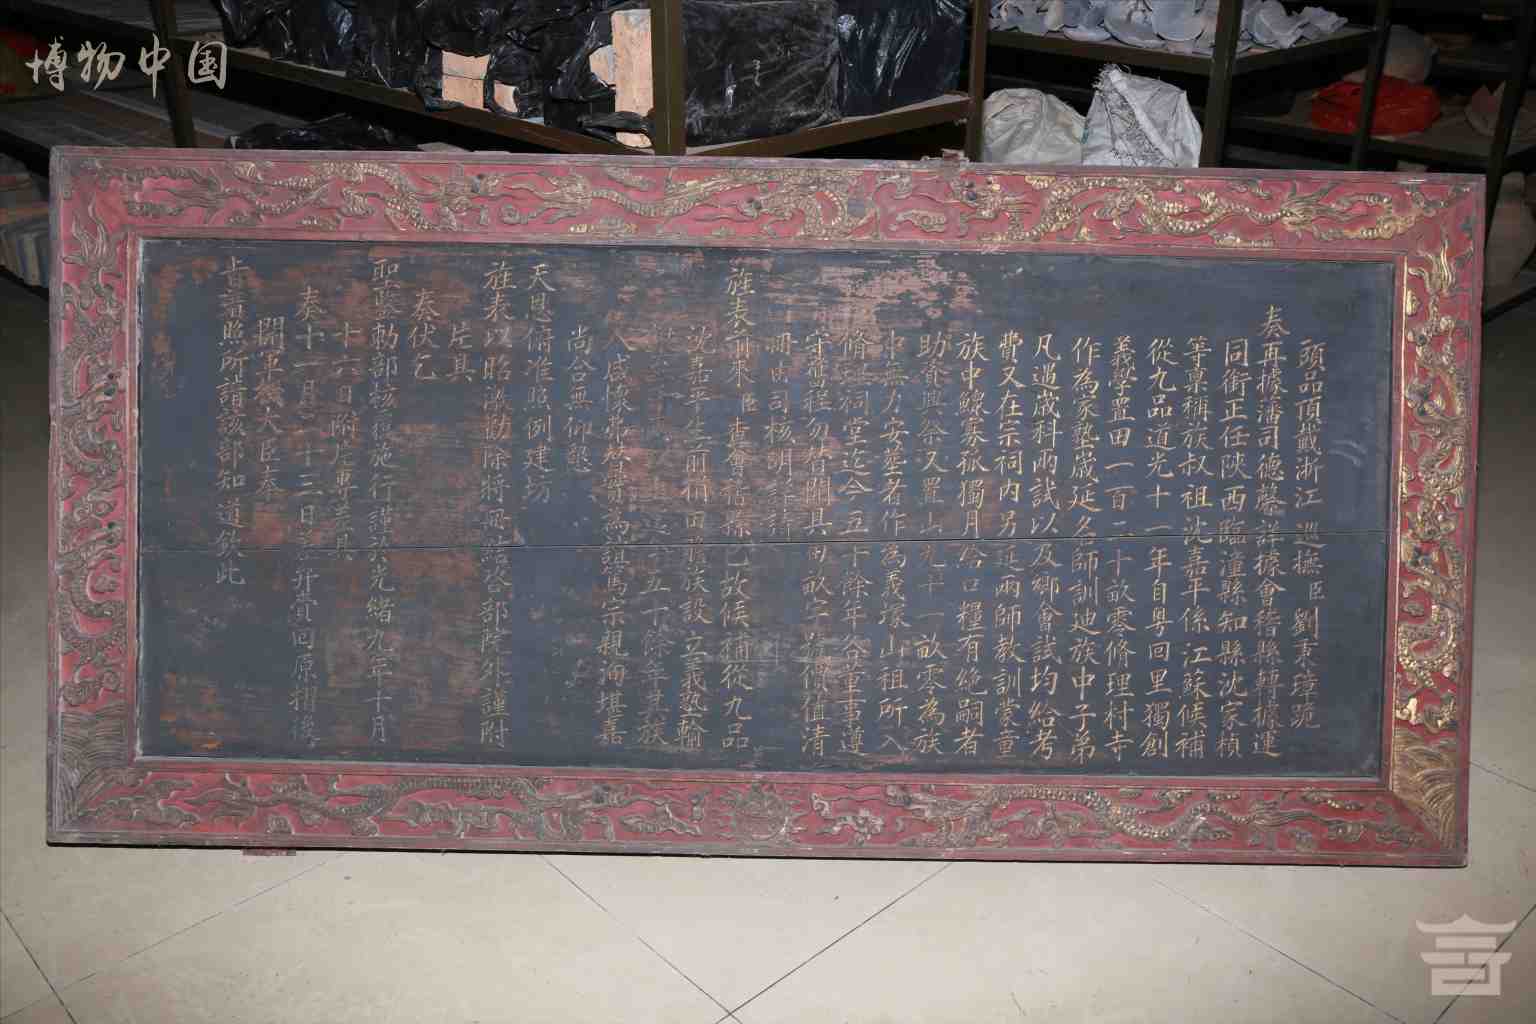 博物中国
頭品頂戴浙江巡撫臣劉秉璋跪
奏再據藩司德馨詳據會稽縣轉據運
同銜正任陝西臨潼縣知縣沈家楨
等稟稱族叔祖沈嘉年係江蘇候補
從九品道光十一年自粤回里獨創
義學置田一百二十畝零脩理村寺
作為家塾歲延名師訓廸族中子弟
凡遇歲科兩試以及鄉會試均給考
費又在宗祠內另延兩師教訓蒙童
族中鰥寡孤獨月給口糧有絶嗣者
助資興祭又置山九畝一畝零為族
中無力安塟者作為義塚山租所入
脩祠堂迄今五十餘年各董事遵
守舊程勿替開具田畝字號價值清
冊由司核明詳請
旌表前來臣查會稽縣已故候補從九品
沈嘉年生前捐田贍族設立義塾輸
迄今五十餘年其族
人咸懷
尚合無仰懇
天恩俯准照例建坊
旌表以昭激勸除將冊結咨部院外謹附
片具
奏伏乞
聖鑒勅部核覆施行謹於光緒九年十月
十六日附片專差具
奏十一月二十三日差弁賫回原摺後
開軍機大臣奉
旨着照所請該部知道欽此